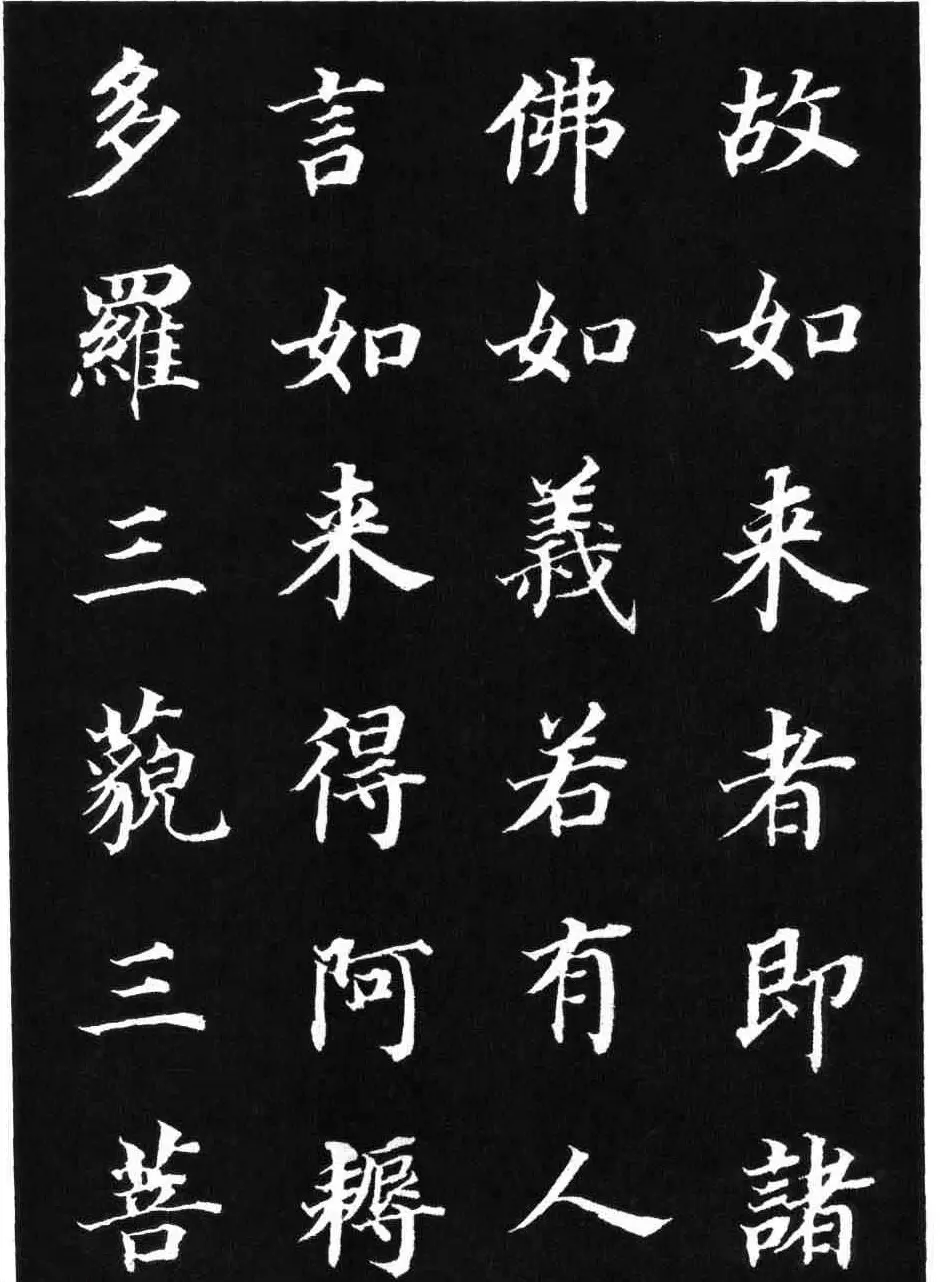 故如来者即諸
佛如義若有人
言如来得阿耨
多羅三藐三菩